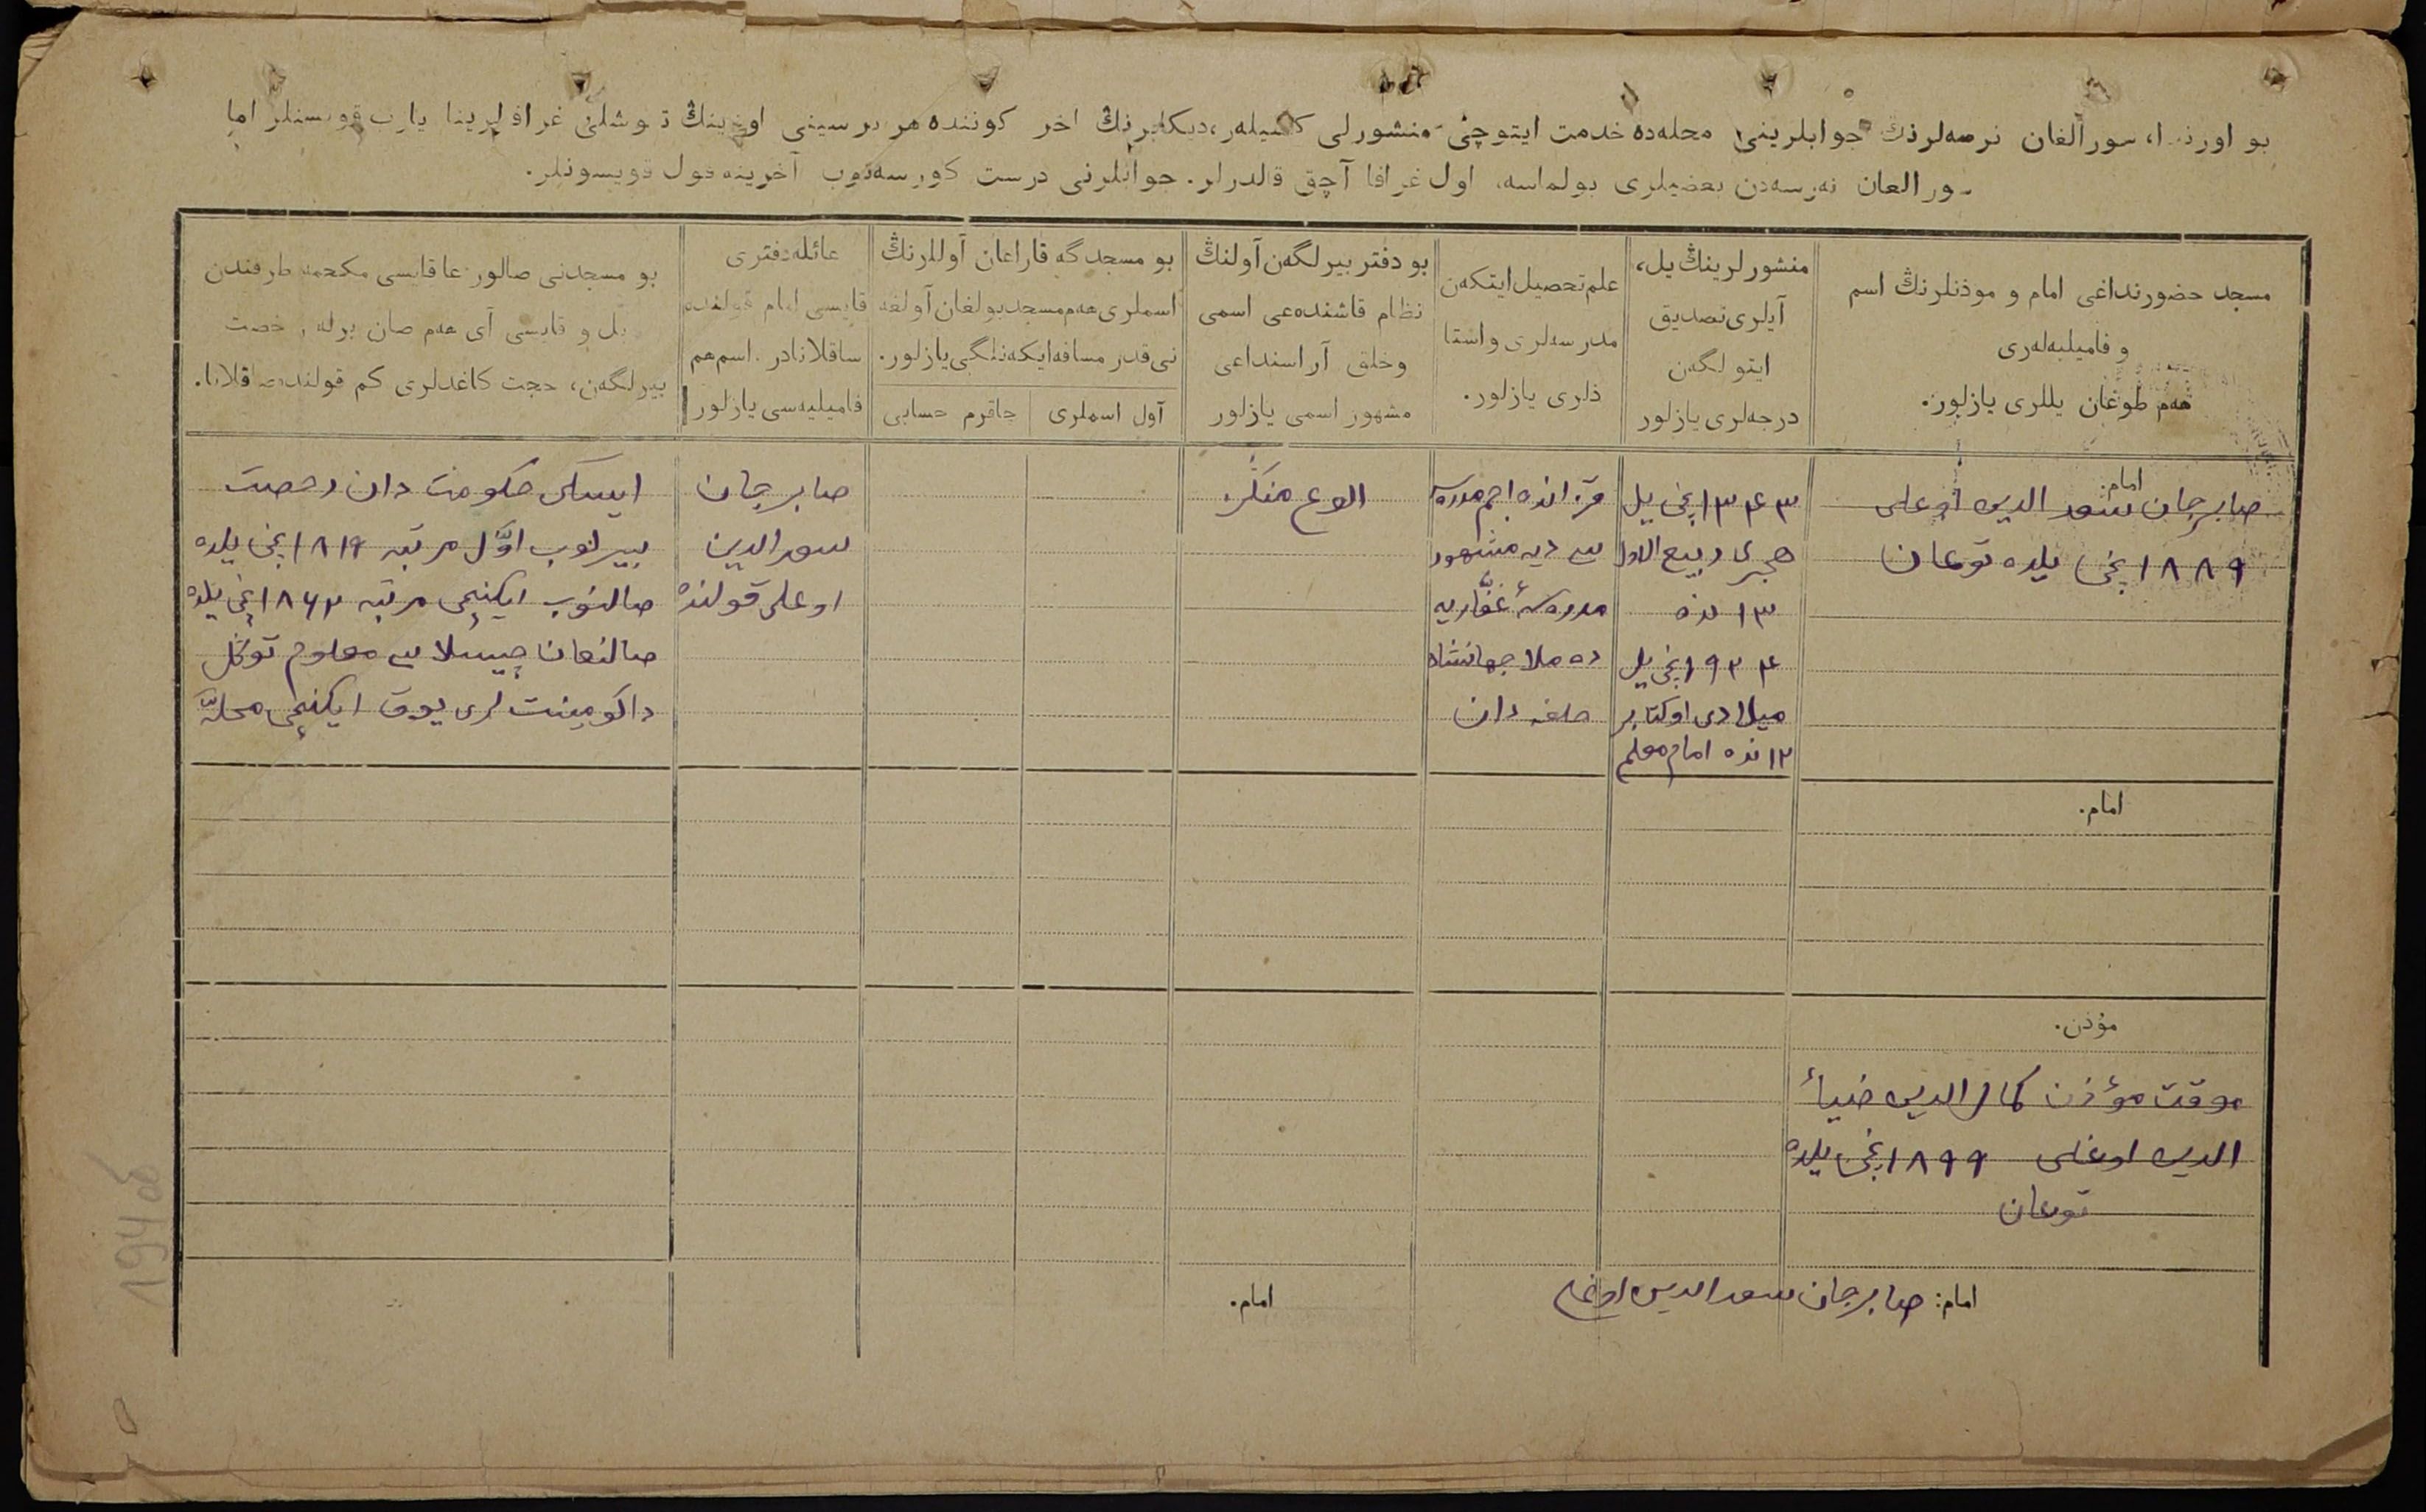 بو اورندا، سورالغان نرصه‌لرنڭ جوابلرینی محله‌ده خدمت ایتوچی منشورلی کشیله‌ر، دیکابرنڭ اخر کوننده هر برسینی اوزینڭ توشلی غرافالرینا یازب قویسنلر اما
سورالغان نه‌رسه‌دن بعضیلری بولماسه، اول غرافا آچق قالدرلر. جوابلرنی درست کورسه‌توب آخرینه قول قویسونلر.
مسجد حضورنداغی امام و موذنلرنڭ اسم
و فامیلیه‌له‌ری
هەم طوغان یللری یازلور.
منشورلرینڭ یل،
آیلری تصدیق
ایتولگەن
درجه‌لری یازلور
علم تحصیل ایتکەن
مدرسه‌لری و استا
ذلری یازلور.
بو دفتر بیرلگەن آولنڭ
نظام قاشنده‌غی اسمی
وخلق آراسنداغی
مشهور اسمی یازلور
بو مسجدگه قاراغان آوللرنڭ
اسملری هەم مسجد بولغان آولغه
نی قدر مسافه‌ایکه‌نلگی یازلور.
آول اسملری
چاقرم حسابی
عائله دفتری
قایسی امام قولنده
ساقلانادر. اسم هم
فامیلیه‌سی یازلور
بو مسجدنی صالورغا قایسی محکمه طرفندن
یل و قایسی آی هەم صان برله رخصت
بیرلگەن، حجت کاغدلری کم قولنده صاقلانا.
امام:
صابرجان سعد الدین اوغلی
۱۸۸۹ نچی یلده توغان
۱۳۴۳ نچی یل
هجری ربیع الاول
۱۳ نده
۱۹۲۴ نچی یل
میلادی اوکتابر
۱۲ نده امام معلم
قزانده اجم مدرسه
سی دیه مشهور
مدرسۀ غفّاریه
ده ملا جهانشاه
حلفه دان
الوغ منگر
صابرجان
سعد الدین
اوغلی قولنده
ایسکی حکومت دان رخصت
بیرلوب اوّل مرتبه ۱۸۱۹ نچی یلده
صالنوب ایکنچی مرتبه ۱۸۶۲ نچی یلده
صالنغان چیسلاسی معلوم توگل
داکومینت لری یوق ایکنچی محلّه
امام.
مؤذن.
موقت مؤذن کمال الدین ضیاء
الدین اوغلی ۱۸۹۹ نچی یلده
توغان
امام: صابرجان سعد الدین اوغلی
امام.
194 об